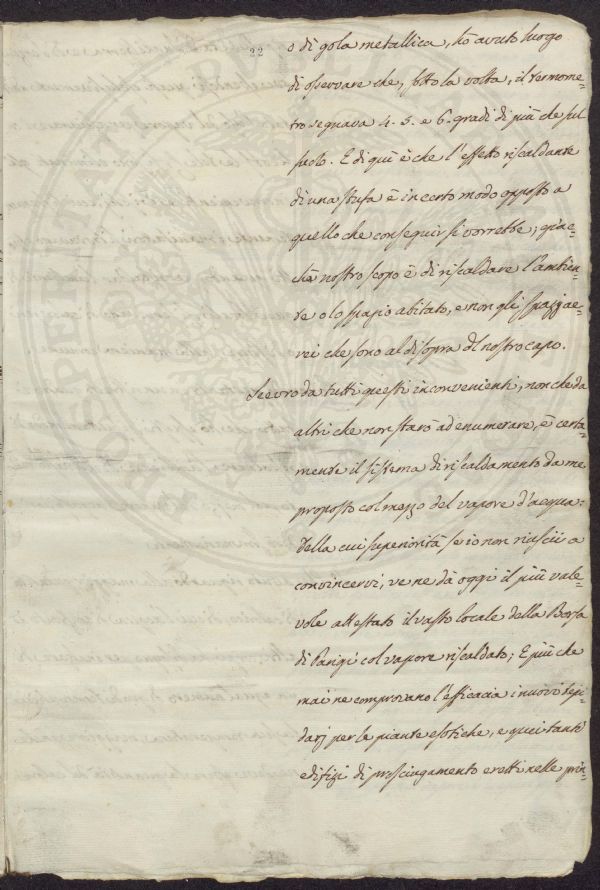 22
o di gola metallica, hò avuto luogo
di osservare che, sotto la volta, il termome-
tro segnava 4. 5. e 6. gradi di più che sul
suolo. E di quì è che l'effetto riscaldante
di una stufa è in certo modo opposto a
quello che conseguir si vorrebbe, giac-
chè nostro scopo è di riscaldare l'ambien-
te o lo spazio abitato, e non gli spazj ae-
rei che sono al disopra del nostro capo.
Scevro da tutti questi inconvenienti, non che da
altri che non starò ad enumerare, è certa-
mente il sistema di riscaldamento da me
proposto col mezzo del vapore d'acqua:
della cui superiorità se io non riuscii a
convincervi, ve ne dà oggi il più vale-
vole attestato il vasto locale della Borsa
di Parigi col vapore riscaldato; E più che
mai ne comprovano l'efficacia i nuovi tepi-
darj per le piante esotiche, e quei tanti
edifizi di prosciugamento eretti nelle prin-